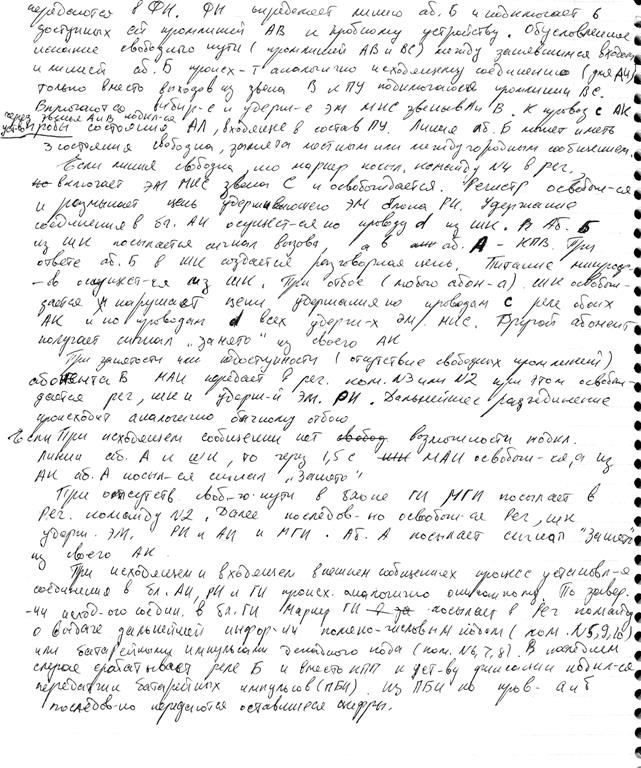 передаются в ФИ. ФИ определяет линию аб. Б и подключает 6
доступных ей промлиний АВ к пробному устройству. Обусловленное
искание свободного пути (промлиний АВ и ВС) между занявшимся входом
и линией аб. Б происх-т аналогично исходящему соединению (для АИ)
только вместо выходов из звена В к ПУ подключаются промлинии ВС.
Включаются выбир-е и удерж-е ЭМ МКС звеньев А и В. К провод с АК
через звенья А и В подкл-ся
устр. пробы состояния АЛ, входящее в состав ПУ. Линия аб. Б может иметь
3 состояния свободна, занята местным или междугородным сообщением.
Если линия свободна, то маркер посыл. команду N4 в рег.
включает ЭМ МКС звена С и освобождается. Регистр освобож-ся
и размыкает цепь удерживающего ЭМ блока РИ. Удержание
соединения в бл. АИ осущест-ся по проводу d из ШК. В Аб. Б
из ШК посылается сигнал вызова, а в аб. А - КПВ. При
ответе аб. Б в ШК создается разговорная цепь. Питание микроф-
-в осущест-ся из ШК. При отбое (любого абон-а). ШК освобож-
дается и нарушает цепи удержания по проводам с реле обоих
АК и по проводам d всех удерж-х ЭМ. МКС. Другой абонент
получает сигнал "занято" из своего АК
При занятости или недоступности (отсутствие свободных пром линий)
абонента В МАИ передает в рег. ком. N3 или N2 при этом освобож-
дается рег, ШК и удерж-й ЭМ. РИ. Дальнейшее разъединение
происходит аналогично обычному отбою
Если При исходящем соединении нет свобод возможности подкл.
линии аб. А и ШК, то через 1,5 с МАИ освобож-ся, а из
АК аб. А посыл-ся сигнал "Занято"
При отсутств своб-го пути в блоке ГИ МГИ посылает в
Рег. команду N2. Далее последов-но освобож-ся Рег, ШК
удерж. ЭМ. РИ и АИ и МГИ. Аб. А посылает сигнал "Занято"
из своего АК.
При исходящем и входящем внешнем сообщениях процесс установл-я
соединения в бл. АИ, РИ и ГИ происх. аналогично описанному. По заверш-
-ии исход-ого соедин. в бл. ГИ Маркер ГИ посылает в Рег команду
о выдаче дальнейшей инфор-ии полюсо-числовым кодом (ком. N5,9,10)
или батарейными импульсами декадного кода (ком. N6,7,8). В последнем
случае срабатывает реле Б и вместо КПП к уст-ву подкл-ся
передатчик батарейных импульсов (ПБИ). Из ПБИ по пров- а и б
последов-но передаются оставшиеся цифры.